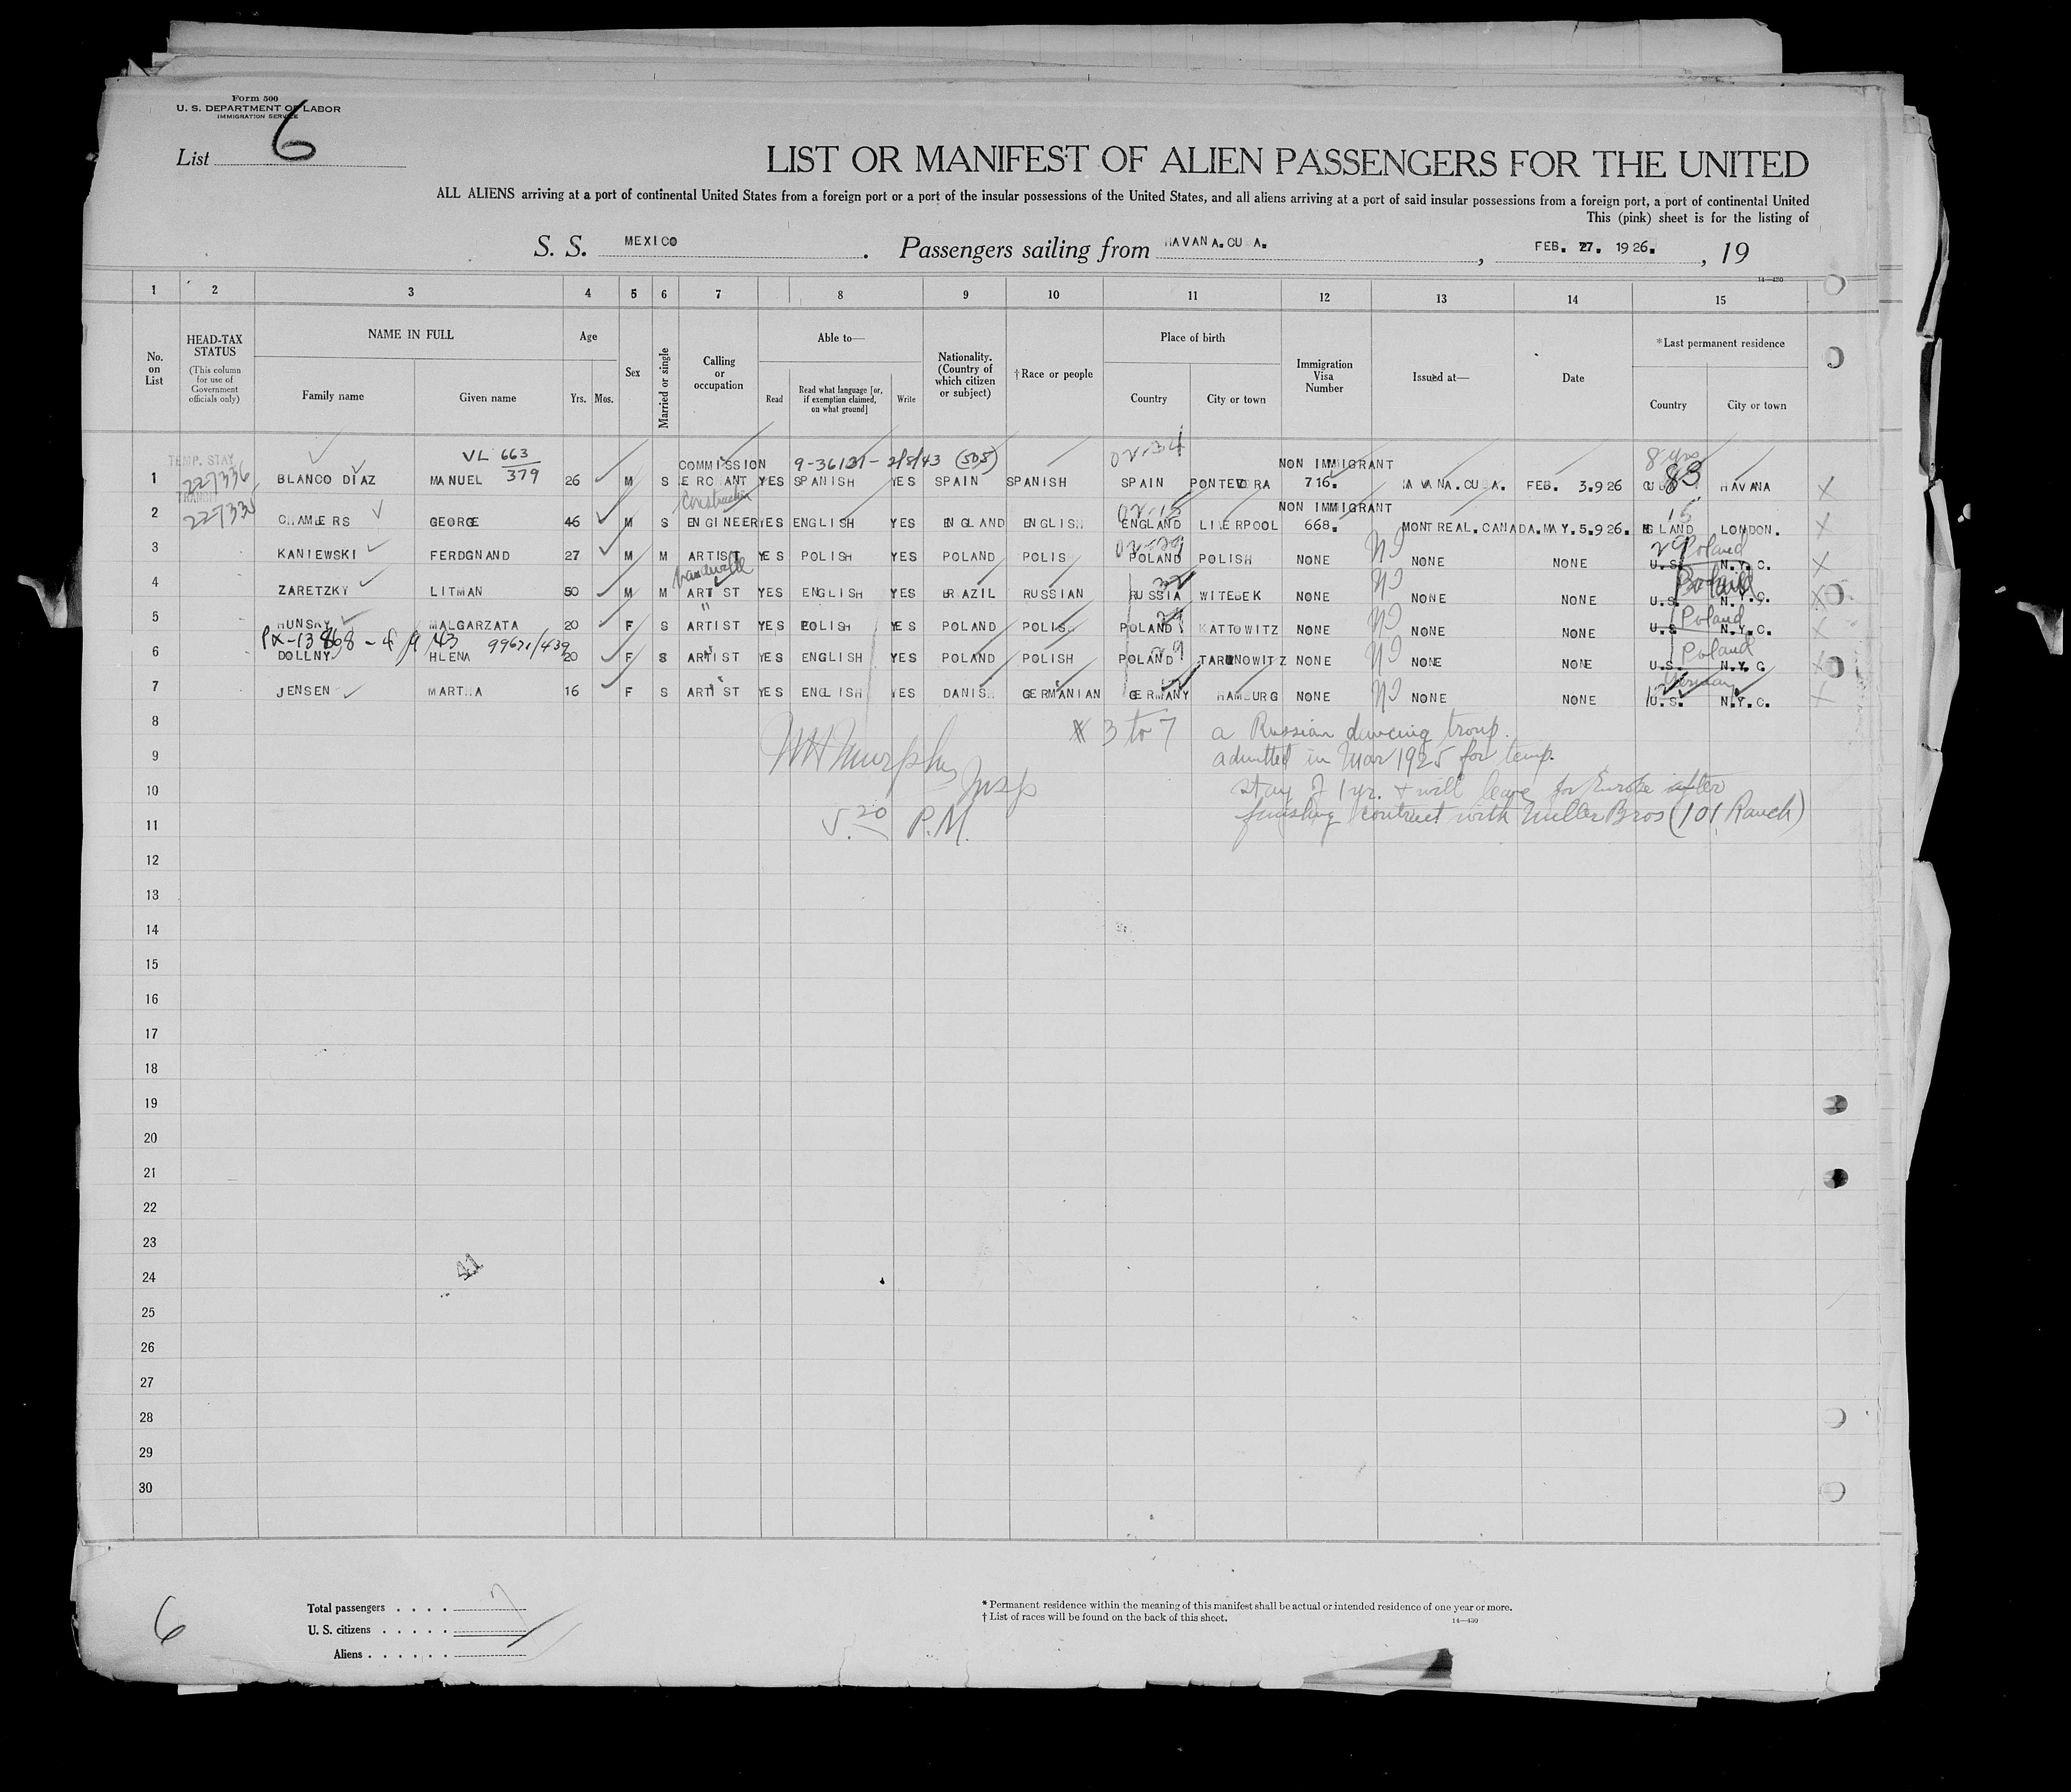 Form 500
U. S. DEPARTMENT OF LABOR
IMMIGRATION SERVICE
List 6
LIST OR MANIFEST OF ALIEN PASSENGERS FOR THE UNITED
ALL ALIENS arriving at a port of continental United States from a foreign port or a port of the insular possessions of the United States, and all aliens arriving at a port of said insular possessions from a foreign port, a port of continental United
This (pink) sheet is for the listing of
S. S. MEXICO. Passengers sailing from HAVANA.CUBA., FEB. 27. 1926., 19
14—430
1 2 3 4 5 6 7 8 9 10 11 12 13 14 15
No. on List
HEAD-TAX STATUS (This column for use of Government officials only)
NAME IN FULL
Family name Given name
Age
Yrs. Mos.
Sex
Married or single
Calling or occupation
Able to—
Read
Read what language [or, if exemption claimed, on what ground]
Write
Nationality. (Country of which citizen or subject)
†Race or people
Place of birth
Country City or town
Immigration Visa Number
Issued at—
Date
*Last permanent residence
Country City or town
TEMP. STAY VL 663/379 COMMISSION 9-36121- 2/8/43 (505) 02-34 NON IMMIGRANT 8 yrs
1 227336 BLANCO DIAZ MANUEL 26 M S ERCHANT YES SPANISH YES SPAIN SPANISH SPAIN PONTEVDRA 716. HAVANA.CUBA. FEB. 3.926 83 HAVANA
TRANSIT Construction NON IMMIGRANT
2 CHAMBERS GEORGE 46 M S ENGINEER YES ENGLISH YES ENGLAND ENGLISH ENGLAND LIERPOOL 668. MONTREAL.CANADA. MAY.5.926. ENGLAND LONDON.
3 KANIEWSKI FERDGNAND 27 M M ARTIST YES POLISH YES POLAND POLISH POLAND POLISH NONE NONE NONE U.S. N.Y.C. Poland
vaudeville
4 ZARETZKY LITMAN 50 M M ARTIST YES ENGLISH YES BRAZIL RUSSIAN RUSSIA WITEBEK NONE NONE NONE U.S. N.Y.C.
5 HUNSKY MALGARZATA 20 F S ARTIST YES POLISH YES POLAND POLISH POLAND KATTOWITZ NONE NONE NONE U.S. N.Y.C. Poland
99671/439
6 DOLLNY HLENA 20 F S ARTIST YES ENGLISH YES POLAND POLISH POLAND TARNOWITZ NONE NONE NONE U.S. N.Y.C Poland
7 JENSEN MARTHA 16 F S ARTIST YES ENGLISH YES DANISH GERMANIAN GERMANY HAMBURG NONE NONE NONE U.S. N.Y.C. Germany
8 # 3 to 7 a Russian dancing troup.
9 WH Murphy Insp admitted in Mar 1925 for temp.
10 stay of 1 yr. & will leave for Europe after
11 5.20 P.M. finishing contract with Miller Bros (101 Ranch)
12
13
14
15
16
17
18
19
20
21
22
23
24
25
26
27
28
29
30
6
Total passengers . . . . 7
U. S. citizens . . . . .
Aliens . . . . . .
* Permanent residence within the meaning of this manifest shall be actual or intended residence of one year or more.
† List of races will be found on the back of this sheet.
14—430